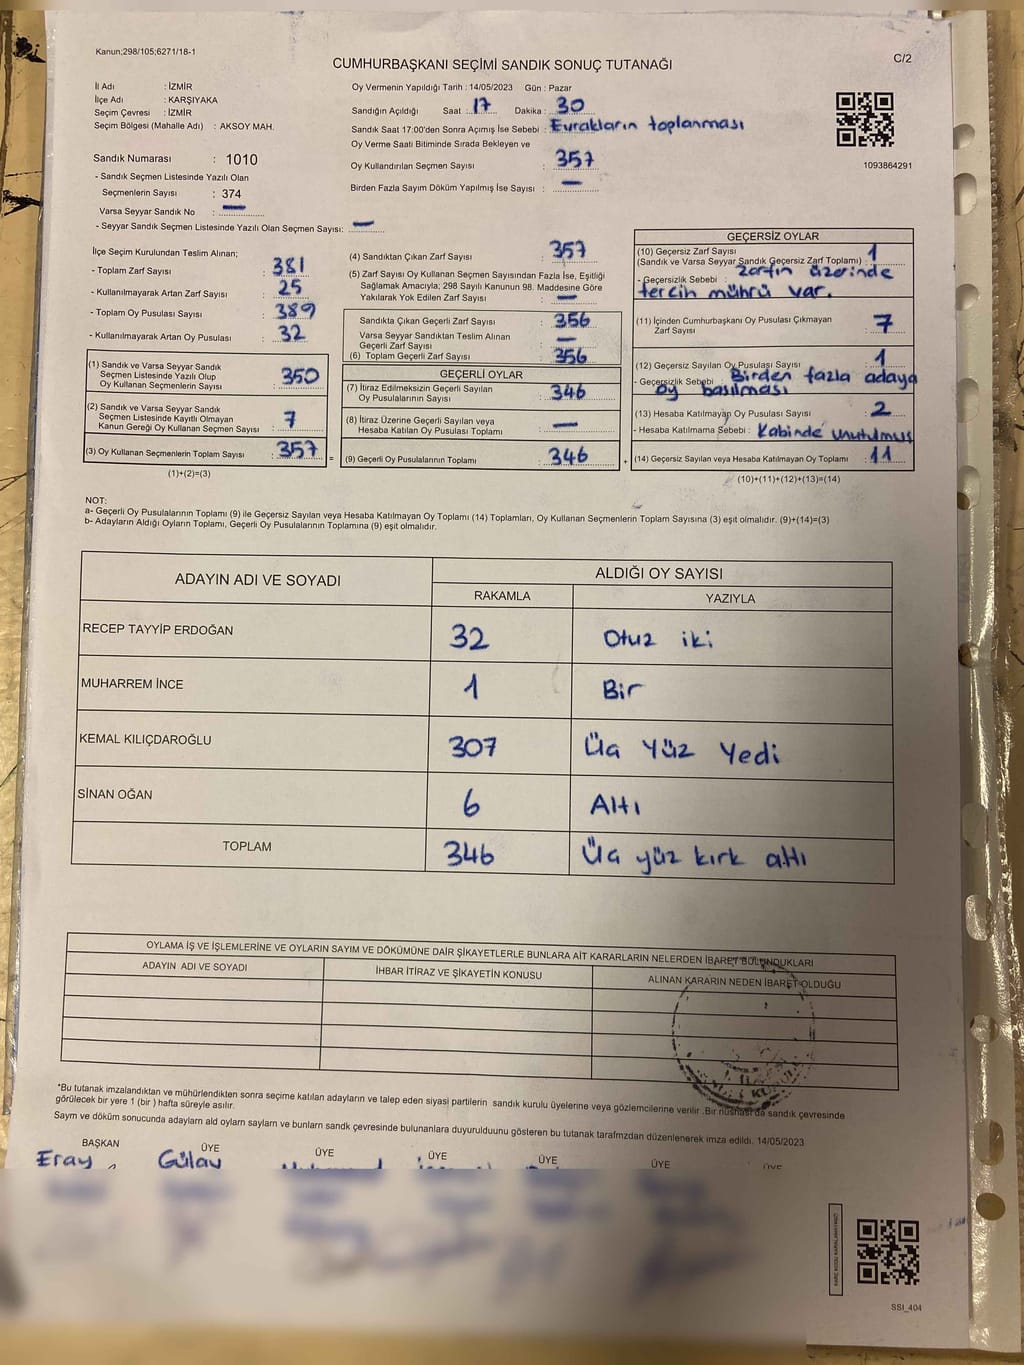 Kanun;298/105;6271/18-1
CUMHURBAŞKANI SEÇİMİ SANDIK SONUÇ TUTANAĞI
C/2
İl Adı : İZMİR
İlçe Adı : KARŞIYAKA
Seçim Çevresi : İZMİR
Seçim Bölgesi (Mahalle Adı) : AKSOY MAH.
Sandık Numarası : 1010
- Sandık Seçmen Listesinde Yazılı Olan
Seçmenlerin Sayısı : 374
Varsa Seyyar Sandık No : —
- Seyyar Sandık Seçmen Listesinde Yazılı Olan Seçmen Sayısı: —
Oy Vermenin Yapıldığı Tarih : 14/05/2023 Gün : Pazar
Sandığın Açıldığı Saat : 17 Dakika : 30
Sandık Saat 17:00'den Sonra Açımış İse Sebebi : Evrakların toplanması
Oy Verme Saati Bitiminde Sırada Bekleyen ve
Oy Kullandırılan Seçmen Sayısı : 357
Birden Fazla Sayım Döküm Yapılmış İse Sayısı : —
1093864291
İlçe Seçim Kurulundan Teslim Alınan;
- Toplam Zarf Sayısı : 381
- Kullanılmayarak Artan Zarf Sayısı : 25
- Toplam Oy Pusulası Sayısı : 389
- Kullanılmayarak Artan Oy Pusulası : 32
(1) Sandık ve Varsa Seyyar Sandık
Seçmen Listesinde Yazılı Olup
Oy Kullanan Seçmenlerin Sayısı : 350
(2) Sandık ve Varsa Seyyar Sandık
Seçmen Listesinde Kayıtlı Olmayan
Kanun Gereği Oy Kullanan Seçmen Sayısı : 7
(3) Oy Kullanan Seçmenlerin Toplam Sayısı : 357 =
(1)+(2)=(3)
(4) Sandıktan Çıkan Zarf Sayısı : 357
(5) Zarf Sayısı Oy Kullanan Seçmen Sayısından Fazla İse, Eşitliği
Sağlamak Amacıyla; 298 Sayılı Kanunun 98. Maddesine Göre
Yakılarak Yok Edilen Zarf Sayısı : —
Sandıkta Çıkan Geçerli Zarf Sayısı : 356
Varsa Seyyar Sandıktan Teslim Alınan
Geçerli Zarf Sayısı : —
(6) Toplam Geçerli Zarf Sayısı : 356
GEÇERLİ OYLAR
(7) İtiraz Edilmeksizin Geçerli Sayılan
Oy Pusulalarının Sayısı : 346
(8) İtiraz Üzerine Geçerli Sayılan veya
Hesaba Katılan Oy Pusulası Toplamı : —
(9) Geçerli Oy Pusulalarının Toplamı : 346 +
GEÇERSİZ OYLAR
(10) Geçersiz Zarf Sayısı : 1
(Sandık ve Varsa Seyyar Sandık Geçersiz Zarf Toplamı)
- Geçersizlik Sebebi : zarfın üzerinde
tercih mührü var.
(11) İçinden Cumhurbaşkanı Oy Pusulası Çıkmayan
Zarf Sayısı : 7
(12) Geçersiz Sayılan Oy Pusulası Sayısı : 1
- Geçersizlik Sebebi : Birden fazla adaya
oy basılması
(13) Hesaba Katılmayan Oy Pusulası Sayısı : 2
- Hesaba Katılmama Sebebi : Kabinde unutulmuş
(14) Geçersiz Sayılan veya Hesaba Katılmayan Oy Toplamı : 11
(10)+(11)+(12)+(13)=(14)
NOT:
a- Geçerli Oy Pusulalarının Toplamı (9) ile Geçersiz Sayılan veya Hesaba Katılmayan Oy Toplamı (14) Toplamları, Oy Kullanan Seçmenlerin Toplam Sayısına (3) eşit olmalıdır. (9)+(14)=(3)
b- Adayların Aldığı Oyların Toplamı, Geçerli Oy Pusulalarının Toplamına (9) eşit olmalıdır.
ADAYIN ADI VE SOYADI
ALDIĞI OY SAYISI
RAKAMLA YAZIYLA
RECEP TAYYİP ERDOĞAN 32 Otuz iki
MUHARREM İNCE 1 Bir
KEMAL KILIÇDAROĞLU 307 Üç Yüz Yedi
SİNAN OĞAN 6 Altı
TOPLAM 346 Üç yüz kırk altı
OYLAMA İŞ VE İŞLEMLERİNE VE OYLARIN SAYIM VE DÖKÜMÜNE DAİR ŞİKAYETLERLE BUNLARA AİT KARARLARIN NELERDEN İBARET BULUNDUKLARI
ADAYIN ADI VE SOYADI İHBAR İTİRAZ VE ŞİKAYETİN KONUSU ALINAN KARARIN NEDEN İBARET OLDUĞU
*Bu tutanak imzalandıktan ve mühürlendikten sonra seçime katılan adayların ve talep eden siyasi partilerin sandık kurulu üyelerine veya gözlemcilerine verilir .Bir nüshası da sandık çevresinde
görülecek bir yere 1 (bir ) hafta süreyle asılır.
Sayım ve döküm sonucunda adayların ald oyların sayları ve bunların sandk çevresinde bulunanlara duyurulduunu gösteren bu tutanak tarafmzdan düzenlenerek imza edildi. 14/05/2023
BAŞKAN ÜYE ÜYE ÜYE ÜYE ÜYE ÜYE
Eray Gülay
KARE KODU KARALAMAYINIZ!
SSI_404